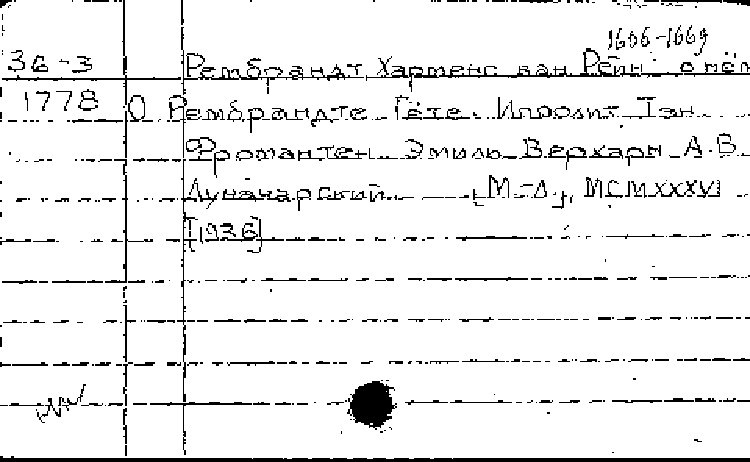 1606-1669
36-3 Рембрандт, Харменс ван Рейн о нём
1778 О Рембрандте. Гёте. Ипполит Тэн.
Фромантен. Эмиль Верхарн. А.В.
Луначарский. [М-Л], MCMXXXVI
[1936]